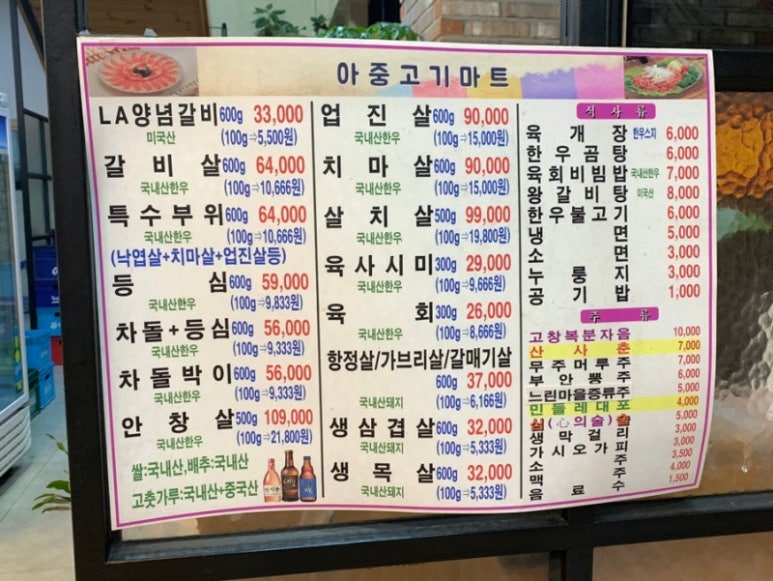 아중고기마트
LA양념갈비 600g 33,000
미국산 (100g⇒5,500원)
갈비살 600g 64,000
국내산한우 (100g⇒10,666원)
특수부위 600g 64,000
국내산한우 (100g⇒10,666원)
(낙엽살+치마살+업진살등)
등심 600g 59,000
국내산한우 (100g⇒9,833원)
차돌+등심 600g 56,000
국내산한우 (100g⇒9,333원)
차돌박이 600g 56,000
국내산한우 (100g⇒9,333원)
안창살 500g 109,000
국내산한우 (100g⇒21,800원)
쌀:국내산,배추:국내산
고춧가루:국내산+중국산
업진살 600g 90,000
국내산한우 (100g⇒15,000원)
치마살 600g 90,000
국내산한우 (100g⇒15,000원)
살치살 500g 99,000
국내산한우 (100g⇒19,800원)
육사시미 300g 29,000
국내산한우 (100g⇒9,666원)
육회 300g 26,000
국내산한우 (100g⇒8,666원)
항정살/가브리살/갈매기살
600g 37,000
국내산돼지 (100g⇒6,166원)
생삼겹살 600g 32,000
국내산돼지 (100g⇒5,333원)
생목살 600g 32,000
국내산돼지 (100g⇒5,333원)
식사류
육개장 한우스지 6,000
한우곰탕 6,000
육회비빔밥 국내산한우 7,000
왕갈비탕 미국산 8,000
한우불고기 6,000
냉면 5,000
소면 3,000
누룽지 3,000
공기밥 1,000
주류
고창복분자음 10,000
산사춘 7,000
무주머루주 7,000
부안뽕주 6,000
느린마을증류주 5,000
민들레대포 4,000
심(心의술)술 5,000
생막걸리 3,000
가시오가피 3,000
소주 3,500
맥주 4,000
음료수 1,500